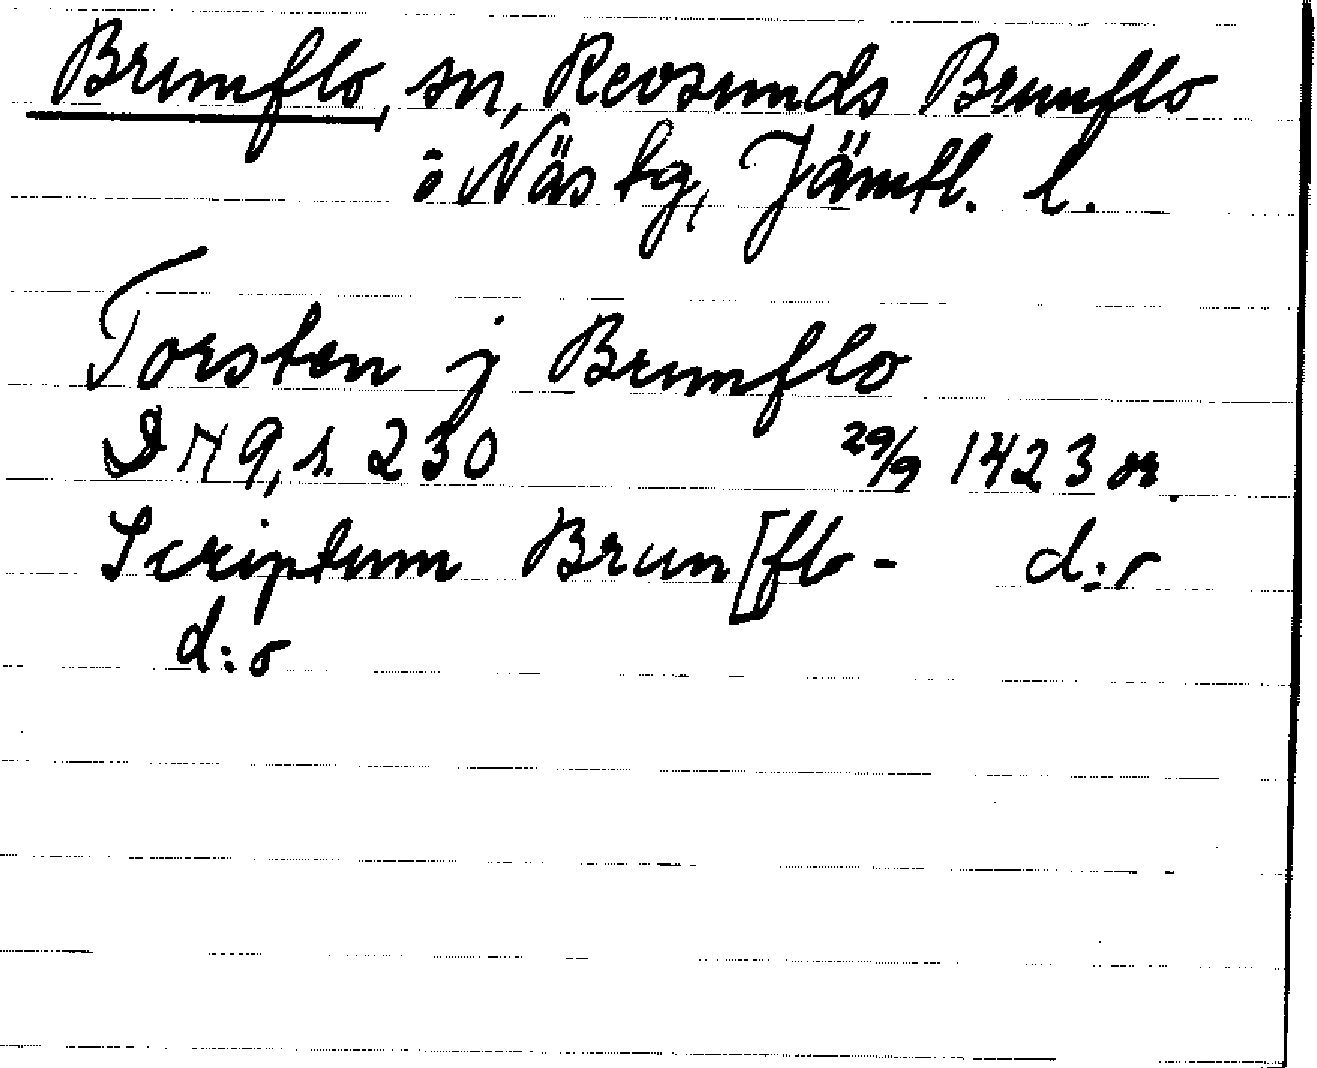 Brunflo, sn, Revsunds Brunflo
i Näs tg, Jämtl. l.
Torsten j Brunflo
D 79, s. 230 29/9 1423 or.
Scriptum Brun[flo - d:o
d:o